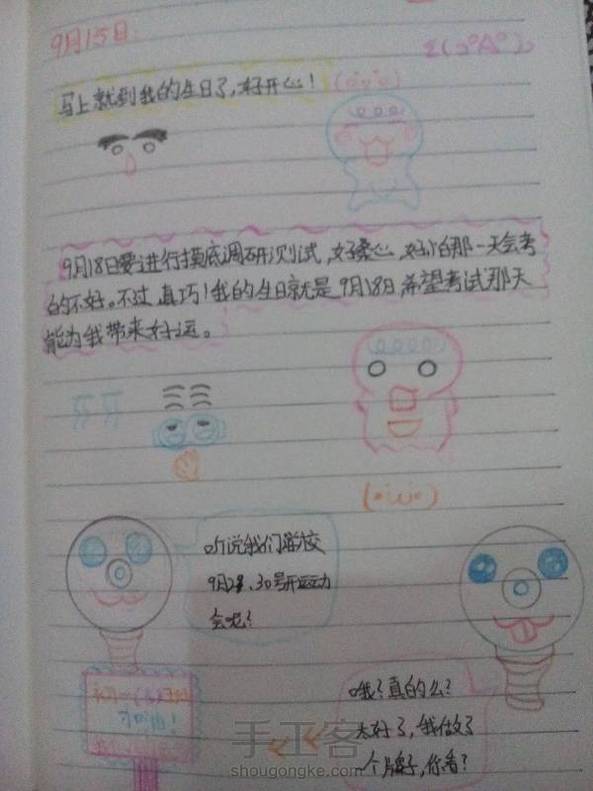 9月15日
Σ(
马上就到我的生日了,好开心!
9月18日要进行摸底调研测试,好桑心,好怕那一天会考
的不好。不过,真巧!我的生日就是9月18日,希望考试那天
能为我带来好运。
听说我们学校
9月28、30号开运动
会呢?
哦?真的么?
太好了,我做了
一个牌子,你看?
加油!
手工客
shougongke.com